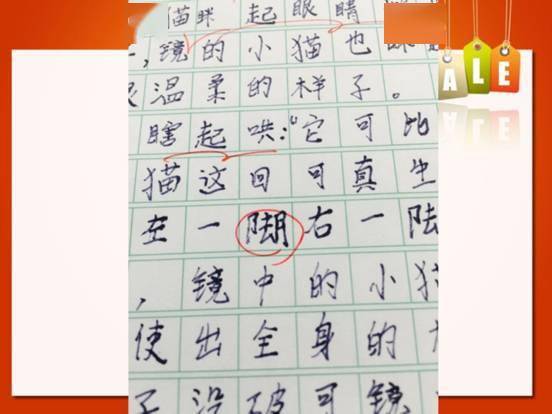 猫眯起眼睛
，镜的小猫也眯
温柔的样子。
瞎起哄：“它可比
猫这回可真生
左一脚右一
，镜中的小猫
使出全身的
子没破可镜
ALE